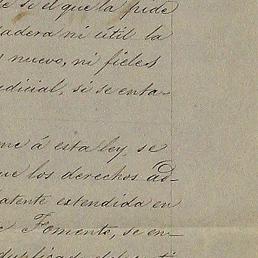 e si el que la pide
dadera ni útil la
nuevo, ni fieles
udicial, si se enta-
me á esta ley, se
ue los derechos ad-
patente extendida en
e Fomento, se en-
duplicad